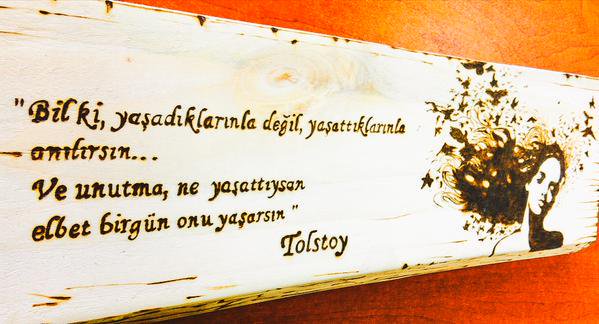 "Bil ki, yaşadıklarınla değil, yaşattıklarınla
anılırsın...
Ve unutma, ne yaşattıysan
elbet birgün onu yaşarsın"
Tolstoy